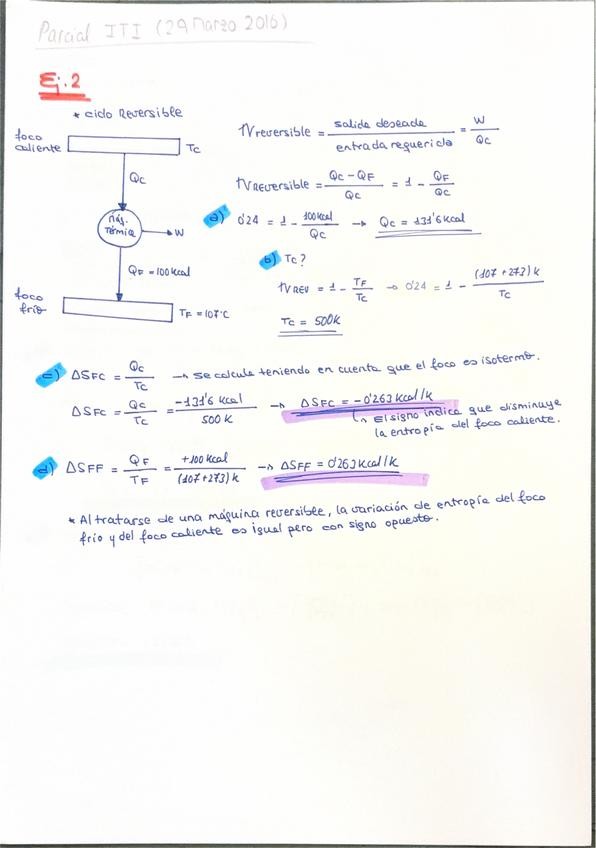 Parcial ITI (29 Marzo 2016)
Ej. 2
* ciclo Reversible
foco caliente
Tc
Qc
Máq. Térmica
W
QF = 100 Kcal
foco frío
TF = 107°C
η reversible = salida deseada / entrada requerida = W / Qc
η Reversible = (Qc - QF) / Qc = 1 - QF / Qc
a) 0'24 = 1 - 100 kcal / Qc → Qc = 131'6 kcal
b) Tc?
η REV = 1 - TF / Tc → 0'24 = 1 - (107 + 273) K / Tc
Tc = 500 K
c) ΔSFC = Qc / Tc → se calcula teniendo en cuenta que el foco es isotermo.
ΔSFC = Qc / Tc = -131'6 Kcal / 500 K → ΔSFC = -0'263 Kcal/K
↳ El signo indica que disminuye
la entropía del foco caliente.
d) ΔSFF = QF / TF = +100 Kcal / (107+273) K → ΔSFF = 0'263 Kcal/K
* Al tratarse de una máquina reversible, la variación de entropía del foco
frio y del foco caliente es igual pero con signo opuesto.